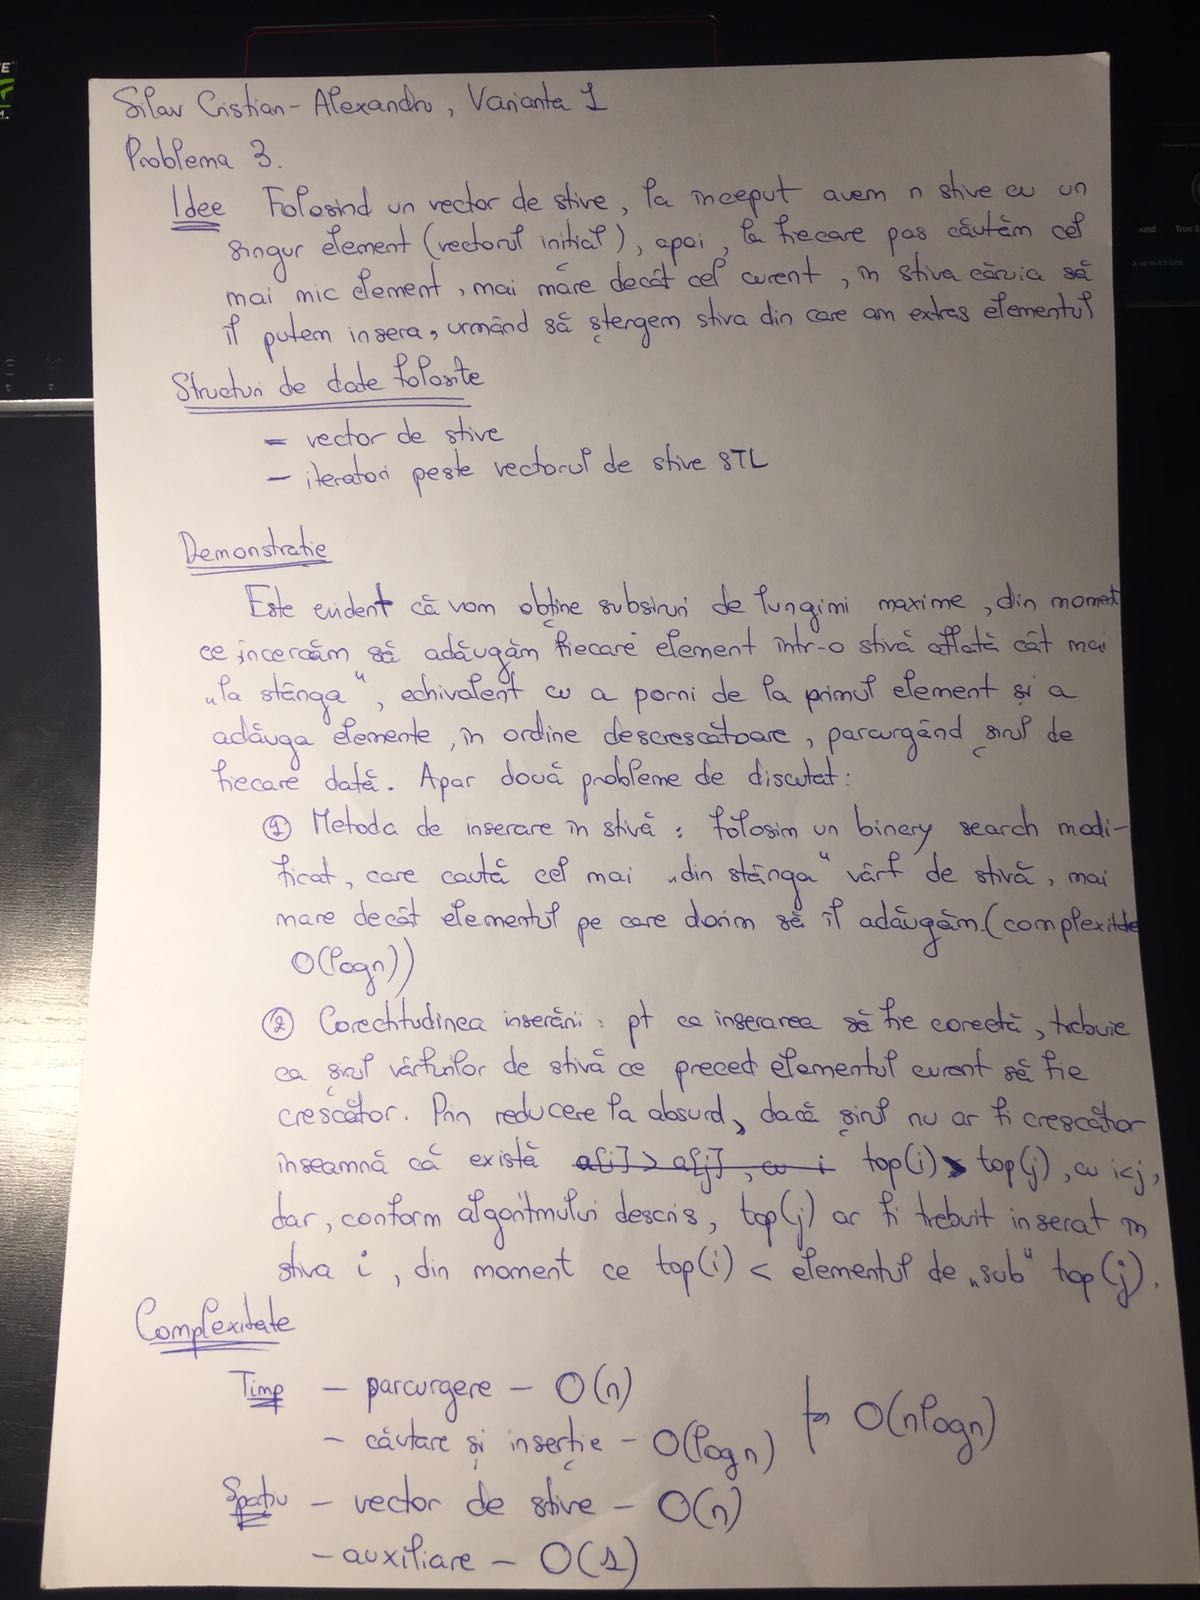 Silav Cristian-Alexandru, Varianta 1
Problema 3.
Idee Folosind un vector de stive, la început avem n stive cu un
singur element (vectorul inițial), apoi, la fiecare pas căutăm cel
mai mic element, mai mare decât cel curent, în stiva căruia să
îl putem insera, urmând să ștergem stiva din care am extras elementul
Structuri de date folosite
- vector de stive
- iteratori peste vectorul de stive STL
Demonstratie
Este evident că vom obține subsiruri de lungimi maxime, din moment
ce încercăm să adăugăm fiecare element într-o stivă aflată cât mai
„la stânga“, echivalent cu a porni de la primul element și a
adăuga elemente, în ordine descrescătoare, parcurgând șirul de
fiecare dată. Apar două probleme de discutat:
① Metoda de inserare în stivă: folosim un binary search modi-
ficat, care caută cel mai „din stânga“ vârf de stivă, mai
mare decât elementul pe care dorim să îl adăugăm.(complexitate
O(logn))
② Corectitudinea inserării: pt ca inserarea să fie corectă, trebuie
ca șirul vârfurilor de stivă ce preced elementul curent să fie
crescător. Prin reducere la absurd, dacă șirul nu ar fi crescător
înseamnă că există a[i] > a[j], cu i top(i) > top(j), cu i<j,
dar, conform algoritmului descris, top(j) ar fi trebuit inserat în
stiva i, din moment ce top(i) < elementul de „sub“ top(j).
Complexitate
Timp - parcurgere - O(n)
- căutare și inserție - O(logn) O(nlogn)
Spațiu - vector de stive - O(n)
- auxiliare - O(1)